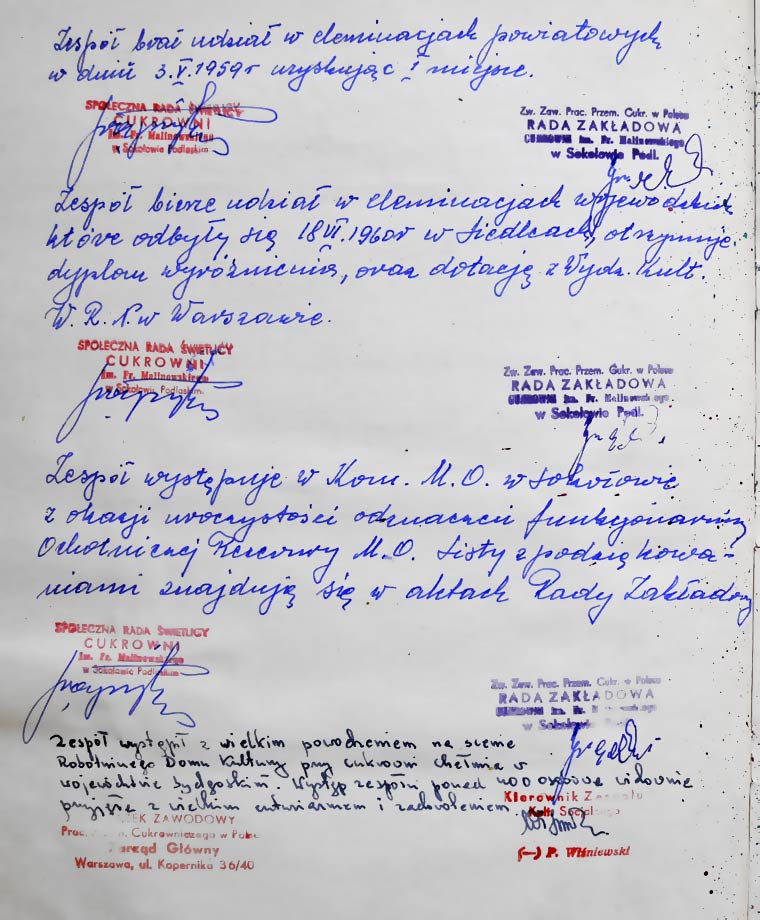 Zespół brał udział w eleminacjach powiatowych
w dniu 3.V.1959r uzyskując I miejsce.
SPOŁECZNA RADA ŚWIETLICY
CUKROWNI
im. Fr. Malinowskiego
w Sokołowie Podlaskim
Zw. Zaw. Prac. Przem. Cukr. w Polsce
RADA ZAKŁADOWA
CUKROWNI im. Fr. Malinowskiego
w Sokołowie Podl.
Zespół bierze udział w eleminacjach wojewódzkich
które odbyły się 18.VI.1960r w Siedlcach, otrzymuje
dyplom wyróżnienia, oraz dotację z Wydz. Kult.
W. R. N. w Warszawie.
SPOŁECZNA RADA ŚWIETLICY
CUKROWNI
im. Fr. Malinowskiego
w Sokołowie Podlaskim
Zw. Zaw. Prac. Przem. Cukr. w Polsce
RADA ZAKŁADOWA
CUKROWNI im. Fr. Malinowskiego
w Sokołowie Podl.
Zespół występuje w Kom. M. O. w Sokołowie
z okazji uroczystości odznaczeń funkcjonariuszy
Ochotniczej Rezerwy M. O. Listy z podziękowa-
niami znajdują się w aktach Rady Zakładowej
SPOŁECZNA RADA ŚWIETLICY
CUKROWNI
im. Fr. Malinowskiego
w Sokołowie Podlaskim
Zw. Zaw. Prac. Przem. Cukr. w Polsce
RADA ZAKŁADOWA
w Sokołowie Podl.
Zespół wystąpił z wielkim powodzeniem na scenie
Robotniczego Domu Kultury przy cukrowni Chełmża w
województwie bydgoskim. Występ zespołu ponad 400 osobowa widownia
przyjęła z wielkim entuzjazmem i zadowoleniem
ZWIĄZEK ZAWODOWY
Prac. Przem. Cukrowniczego w Polsce
Zarząd Główny
Warszawa, ul. Kopernika 36/40
Kierownik Zespołu
Kult. Socjalnego
(—) P. Wiśniewski